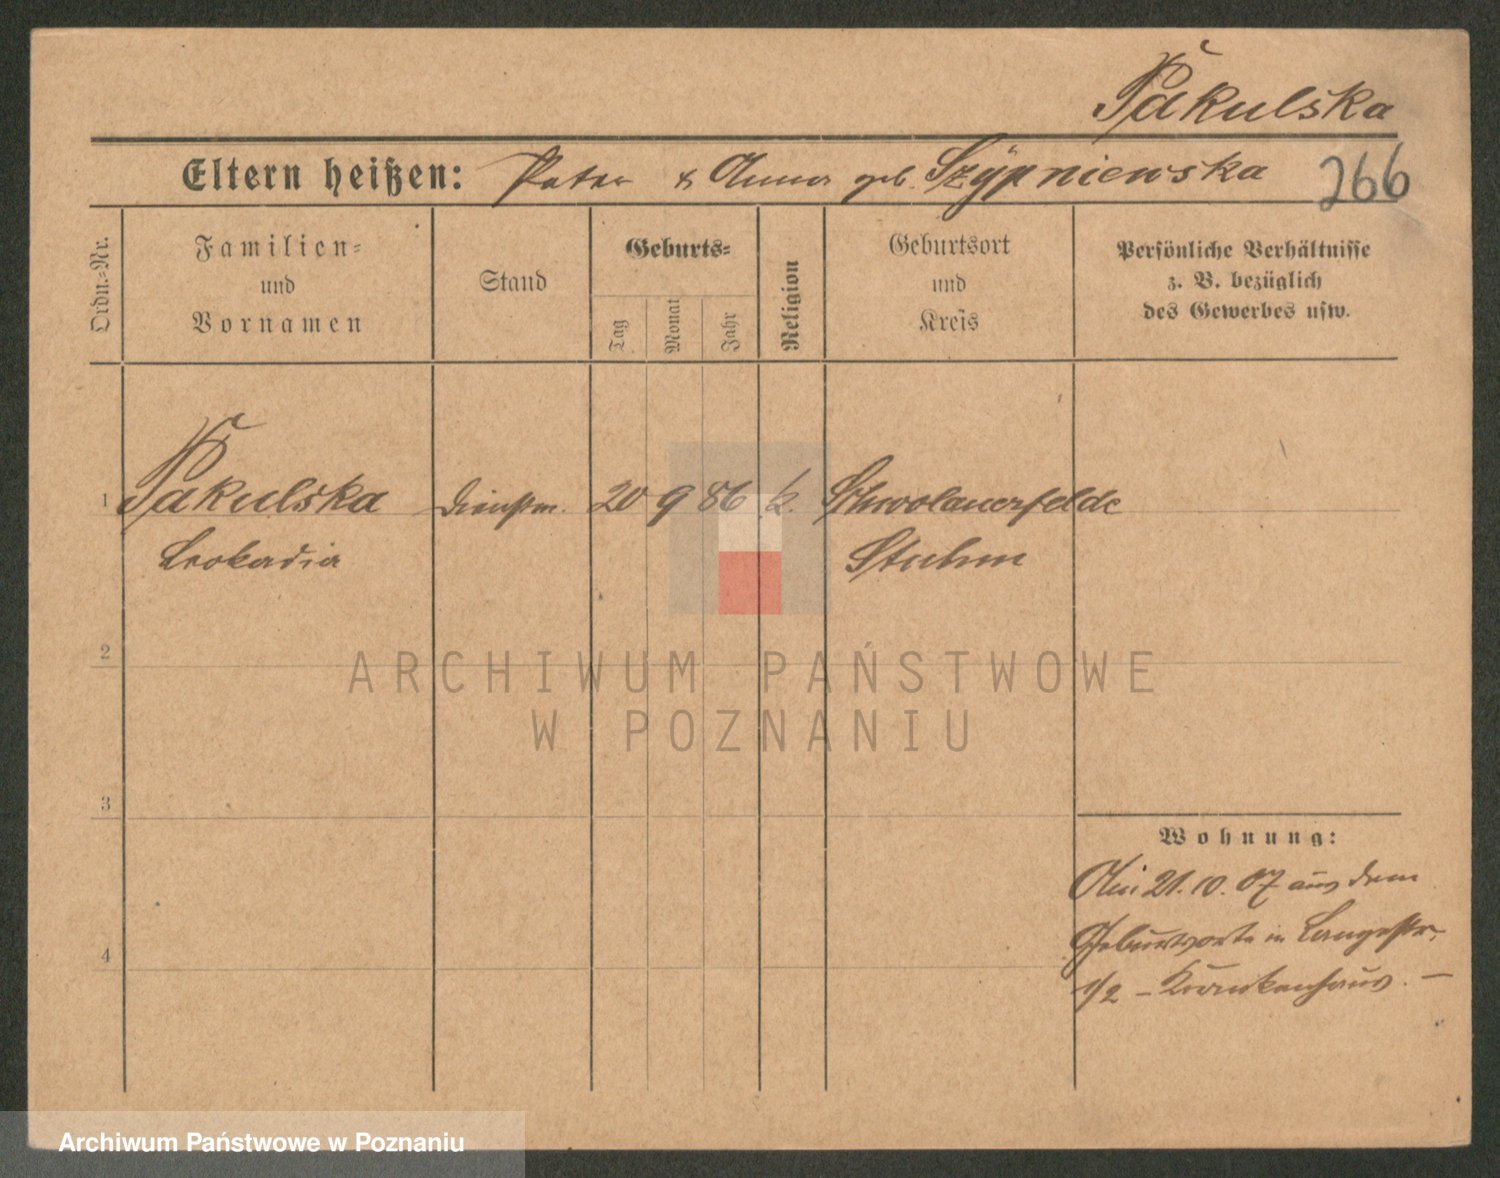 Pakulska
Eltern heißen: Peter & Anna geb. Szÿpniewska 266
Ordn.-Nr.
Familien-
und
Vornamen
Stand
Geburts-
Tag
Monat
Jahr
Religion
Geburtsort
und
Kreis
Persönliche Verhältnisse
z. B. bezüglich
des Gewerbes usw.
1 Pakulska Dienstm. 20 9 86 k. Schwolauerfelde
Leokadia Stuhm
2
3
4
Wohnung:
Am 21.10.07 aus dem
Geburtsorte in Langestr.
1/2 – Krankenhaus. –
ARCHIWUM PAŃSTWOWE
W POZNANIU
Archiwum Państwowe w Poznaniu